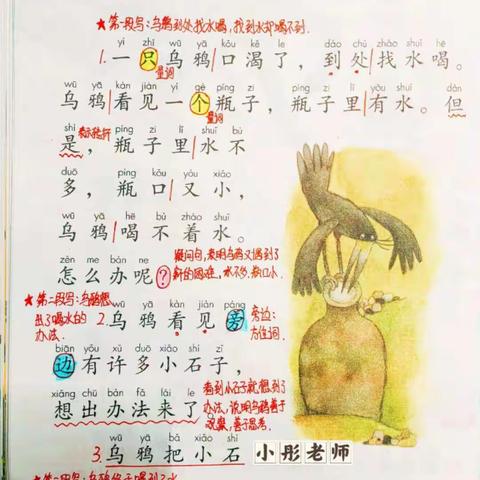 ★第一段写:乌鸦到处找水喝,找到水却喝不到.
yì zhī wū yā kǒu kě le dào chù zhǎo shuǐ hē
1.一只乌鸦口渴了,到处找水喝。
量词
wū yā kàn jiàn yí gè píng zi píng zi lǐ yǒu shuǐ dàn
乌鸦看见一个瓶子,瓶子里有水。但
量词
shì píng zi lǐ shuǐ bù
是,瓶子里水不
表示转折
duō píng kǒu yòu xiǎo
多,瓶口又小,
wū yā hē bù zháo shuǐ
乌鸦喝不着水。
zěn me bàn ne
怎么办呢?
疑问句,表明乌鸦又遇到了
新的困难,水不多,瓶口小.
★第二段写:乌鸦想
出了喝水的
办法.
wū yā kàn jiàn páng
2.乌鸦看见旁
旁边:
方位词.
biān yǒu xǔ duō xiǎo shí zǐ
边有许多小石子,
xiǎng chū bàn fǎ lái le
想出办法来了。
看到小石子就想到了
办法,说明乌鸦善于
观察,善于思考.
wū yā bǎ xiǎo shí
3.乌鸦把小石
小彤老师